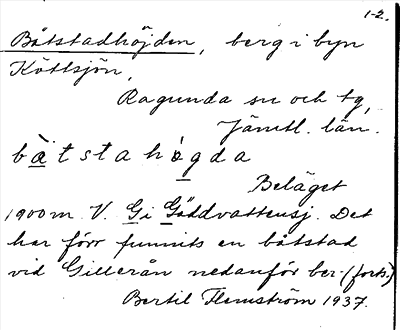 1-2.
Båtstadhöjden, berg i byn
Köttsjön,
Ragunda sn och tg,
Jämtl. län.
bàtstahógda
Beläget
1900 m V. G i Gäddvattensj. Det
har förr funnits en båtstad
vid Gillerån nedanför ber- (forts.)
Bertil Flemström 1937.